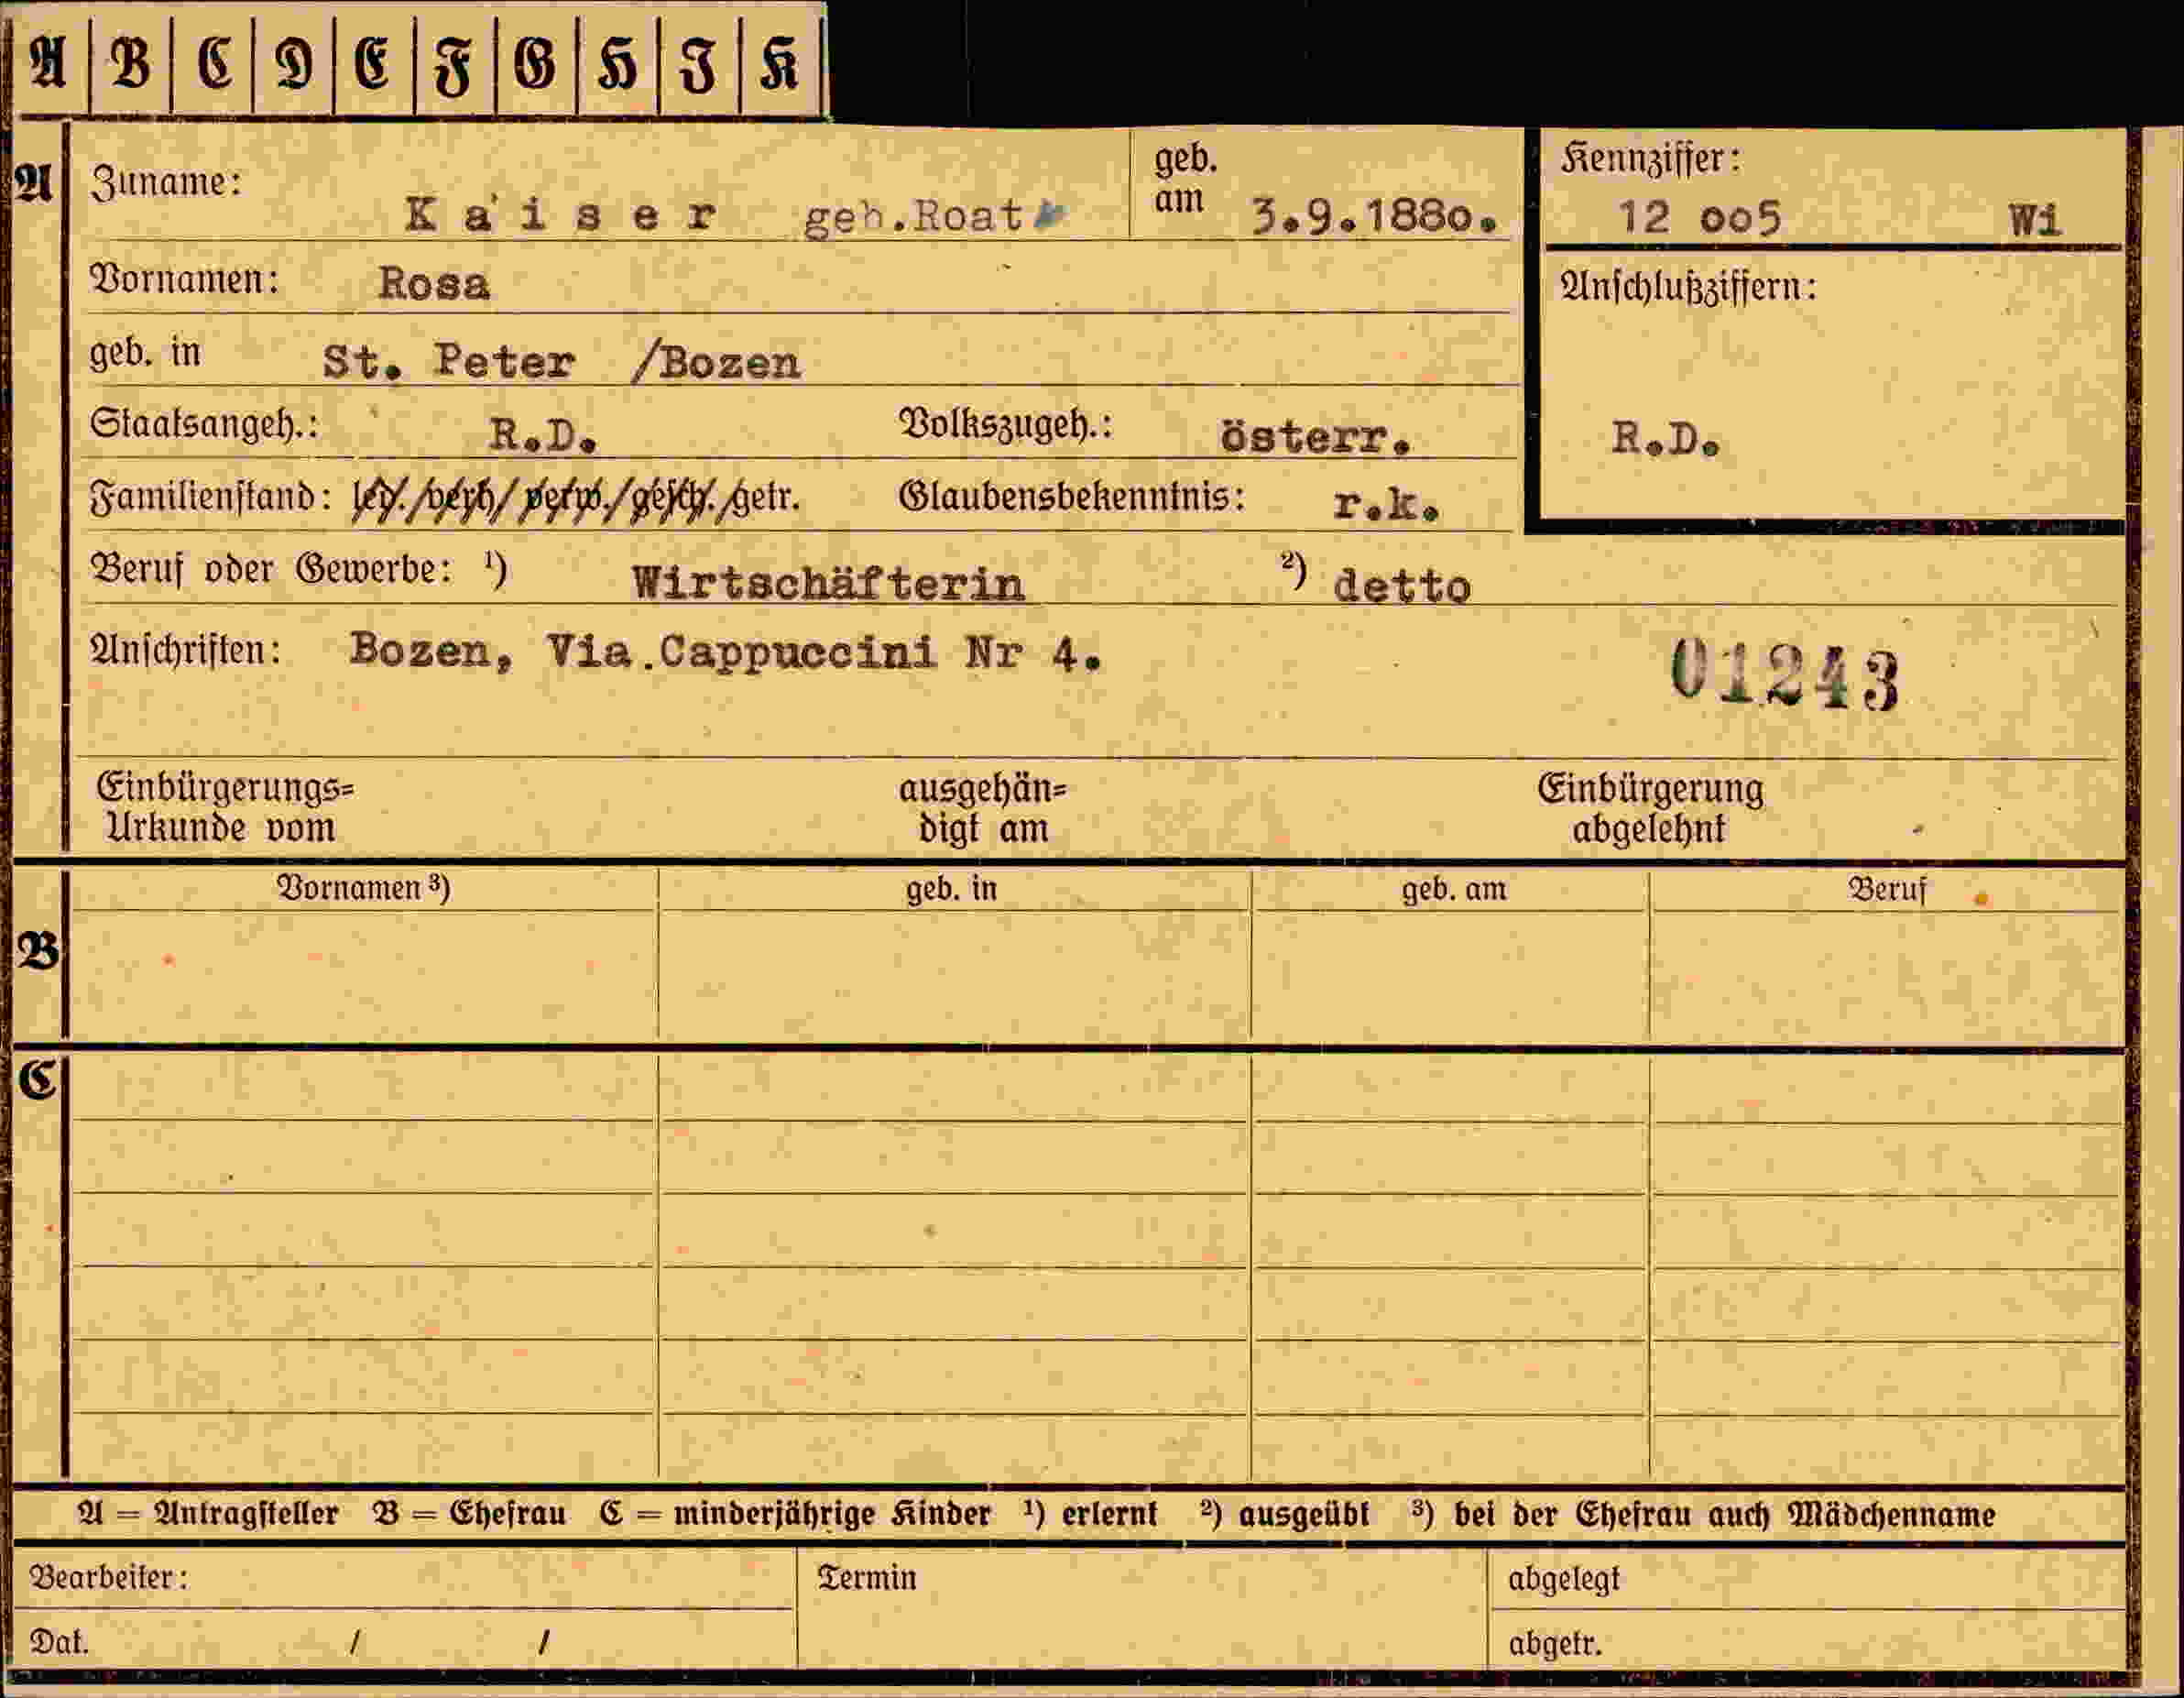 A B C D E F G H I K
A Zuname: Kaiser geb.Roat geb. am 3.9.188o.
Kennziffer:
12 oo5 Wi
Vornamen: Rosa
Anschlußziffern:
geb. in St. Peter /Bozen
Staatsangeh.: R.D. Volkszugeh.: österr.
R.D.
Familienstand: led./verh/verw./gesch./getr. Glaubensbekenntnis: r.k.
Beruf oder Gewerbe: ¹) Wirtschäfterin ²) detto
Anschriften: Bozen, Via.Cappuccini Nr 4.
01243
Einbürgerungs=
Urkunde vom
ausgehän=
digt am
Einbürgerung
abgelehnt
B Vornamen ³) geb. in geb. am Beruf
C
A = Antragsteller B = Ehefrau C = minderjährige Kinder ¹) erlernt ²) ausgeübt ³) bei der Ehefrau auch Mädchenname
Bearbeiter: Termin abgelegt
Dat. / / abgetr.